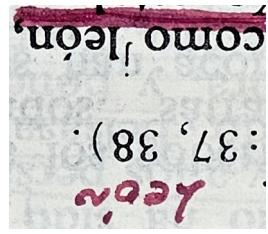 León
:37, 38).
como león,